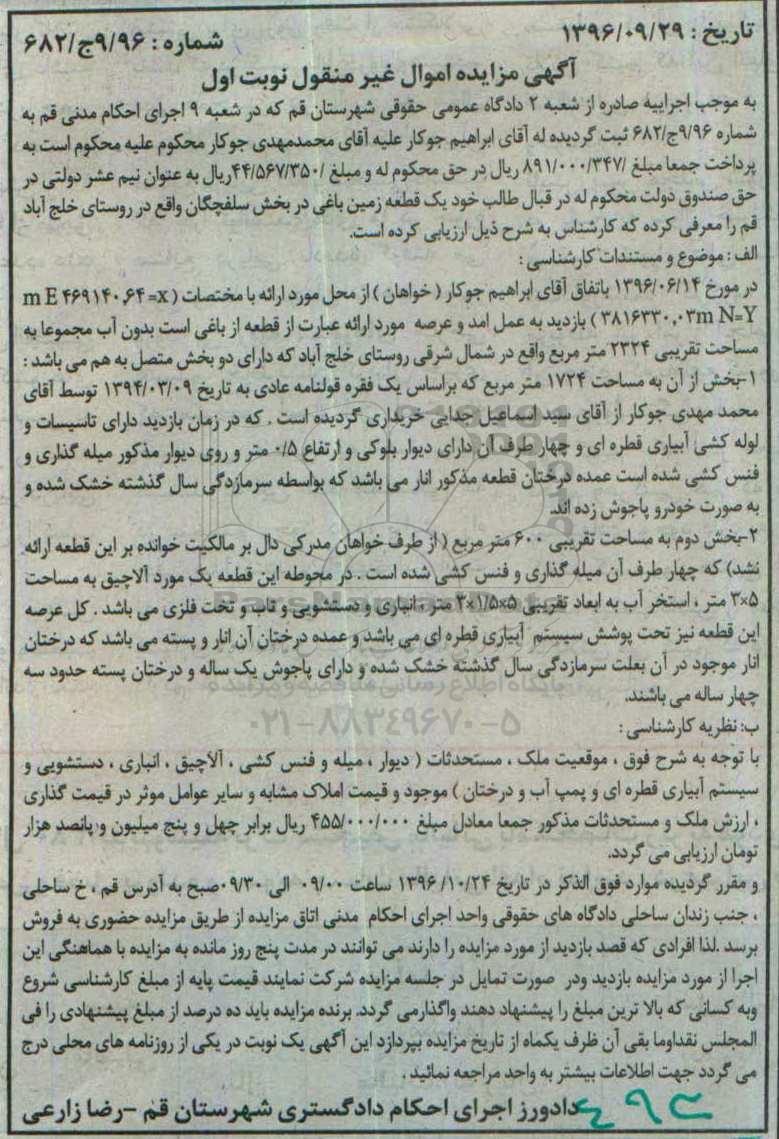 تاریخ : ۱۳۹۶/۰۹/۲۹
شماره : ۹/۹۶ج/۶۸۲
آگهی مزایده اموال غیر منقول نوبت اول
به موجب اجراییه صادره از شعبه ۲ دادگاه عمومی حقوقی شهرستان قم که در شعبه ۹ اجرای احکام مدنی قم به
شماره ۹/۹۶ج/۶۸۲ ثبت گردیده له آقای ابراهیم جوکار علیه آقای محمدمهدی جوکار محکوم علیه محکوم است به
پرداخت جمعا مبلغ /۸۹۱/۰۰۰/۳۴۷ ریال در حق محکوم له و مبلغ /۴۴/۵۶۷/۳۵۰ریال به عنوان نیم عشر دولتی در
حق صندوق دولت محکوم له در قبال طالب خود یک قطعه زمین باغی در بخش سلفچگان واقع در روستای خلج آباد
قم را معرفی کرده که کارشناس به شرح ذیل ارزیابی کرده است.
الف : موضوع و مستندات کارشناسی :
در مورخ ۱۳۹۶/۰۶/۱۴ باتفاق آقای ابراهیم جوکار ( خواهان ) از محل مورد ارائه با مختصات ( m E ۴۶۹۱۴۰,۶۴ =x
۳۸۱۶۳۳۰,۰۳m N=Y ) بازدید به عمل امد و عرصه مورد ارائه عبارت از قطعه از باغی است بدون آب مجموعا به
مساحت تقریبی ۲۳۲۴ متر مربع واقع در شمال شرقی روستای خلج آباد که دارای دو بخش متصل به هم می باشد :
۱-بخش از آن به مساحت ۱۷۲۴ متر مربع که براساس یک فقره قولنامه عادی به تاریخ ۱۳۹۴/۰۳/۰۹ توسط آقای
محمد مهدی جوکار از آقای سید اسماعیل جدایی خریداری گردیده است . که در زمان بازدید دارای تاسیسات و
لوله کشی آبیاری قطره ای و چهار طرف آن دارای دیوار بلوکی و ارتفاع ۰/۵ متر و روی دیوار مذکور میله گذاری و
فنس کشی شده است عمده درختان قطعه مذکور انار می باشد که بواسطه سرمازدگی سال گذشته خشک شده و
به صورت خودرو پاجوش زده اند.
۲-بخش دوم به مساحت تقریبی ۶۰۰ متر مربع ( از طرف خواهان مدرکی دال بر مالکیت خوانده بر این قطعه ارائه
نشد) که چهار طرف آن میله گذاری و فنس کشی شده است . در محوطه این قطعه یک مورد آلاچیق به مساحت
۳×۵ متر ، استخر آب به ابعاد تقریبی ۳×۱/۵×۵ متر ، انباری و دستشویی و تاب و تخت فلزی می باشد . کل عرصه
این قطعه نیز تحت پوشش سیستم آبیاری قطره ای می باشد و عمده درختان آن انار و پسته می باشد که درختان
انار موجود در آن بعلت سرمازدگی سال گذشته خشک شده و دارای پاجوش یک ساله و درختان پسته حدود سه
چهار ساله می باشند.
ب: نظریه کارشناسی :
با توجه به شرح فوق ، موقعیت ملک ، مستحدثات ( دیوار ، میله و فنس کشی ، آلاچیق ، انباری ، دستشویی و
سیستم آبیاری قطره ای و پمپ آب و درختان ) موجود و قیمت املاک مشابه و سایر عوامل موثر در قیمت گذاری
، ارزش ملک و مستحدثات مذکور جمعا معادل مبلغ ۴۵۵/۰۰۰/۰۰۰ ریال برابر چهل و پنج میلیون و پانصد هزار
تومان ارزیابی می گردد.
و مقرر گردیده موارد فوق الذکر در تاریخ ۱۳۹۶/۱۰/۲۴ ساعت ۰۹/۰۰ الی ۰۹/۳۰صبح به آدرس قم ، خ ساحلی
، جنب زندان ساحلی دادگاه های حقوقی واحد اجرای احکام مدنی اتاق مزایده از طریق مزایده حضوری به فروش
برسد .لذا افرادی که قصد بازدید از مورد مزایده را دارند می توانند در مدت پنج روز مانده به مزایده با هماهنگی این
اجرا از مورد مزایده بازدید ودر صورت تمایل در جلسه مزایده شرکت نمایند قیمت پایه از مبلغ کارشناسی شروع
وبه کسانی که بالا ترین مبلغ را پیشنهاد دهند واگذارمی گردد. برنده مزایده باید ده درصد از مبلغ پیشنهادی را فی
المجلس نقداوما بقی آن ظرف یکماه از تاریخ مزایده بپردازد این آگهی یک نوبت در یکی از روزنامه های محلی درج
می گردد جهت اطلاعات بیشتر به واحد مراجعه نمائید .
دادورز اجرای احکام دادگستری شهرستان قم -رضا زارعی
ParsNamadData
پایگاه اطلاع رسانی مناقصه و مزایده
۰۲۱-۸۸۳۴۹۶۷۰-۵